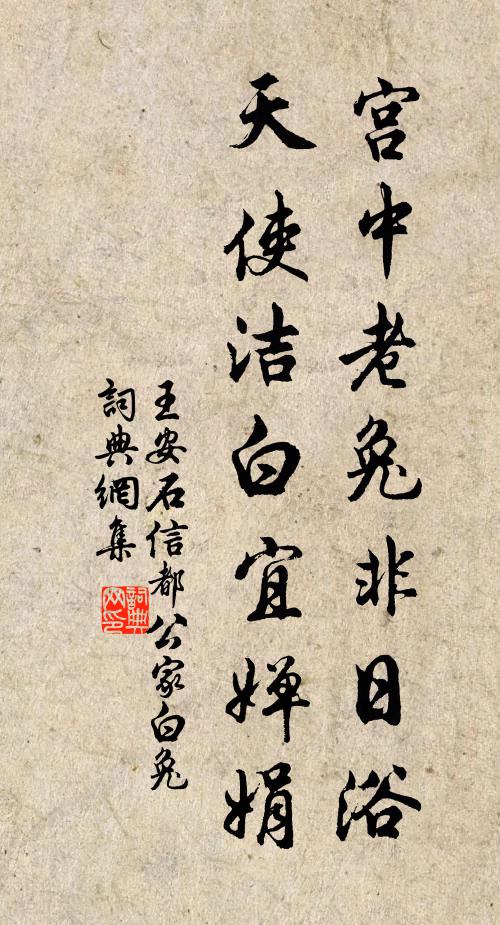 宫中老兔非日浴
天使洁白宜婵娟
王安石信都公家白兔
詞典網集
詞典网印